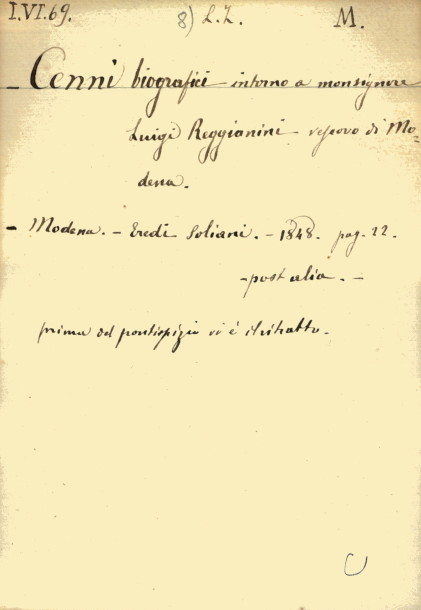 I.VI.69. 8) L. Z. M.
- Cenni biografici intorno a monsignore
Luigi Reggianini vescovo di Mo-
dena.
- Modena. - Eredi Soliani. - 1848. pag. 22.
- post alia. -
prima del frontispizio vi è il ritratto.